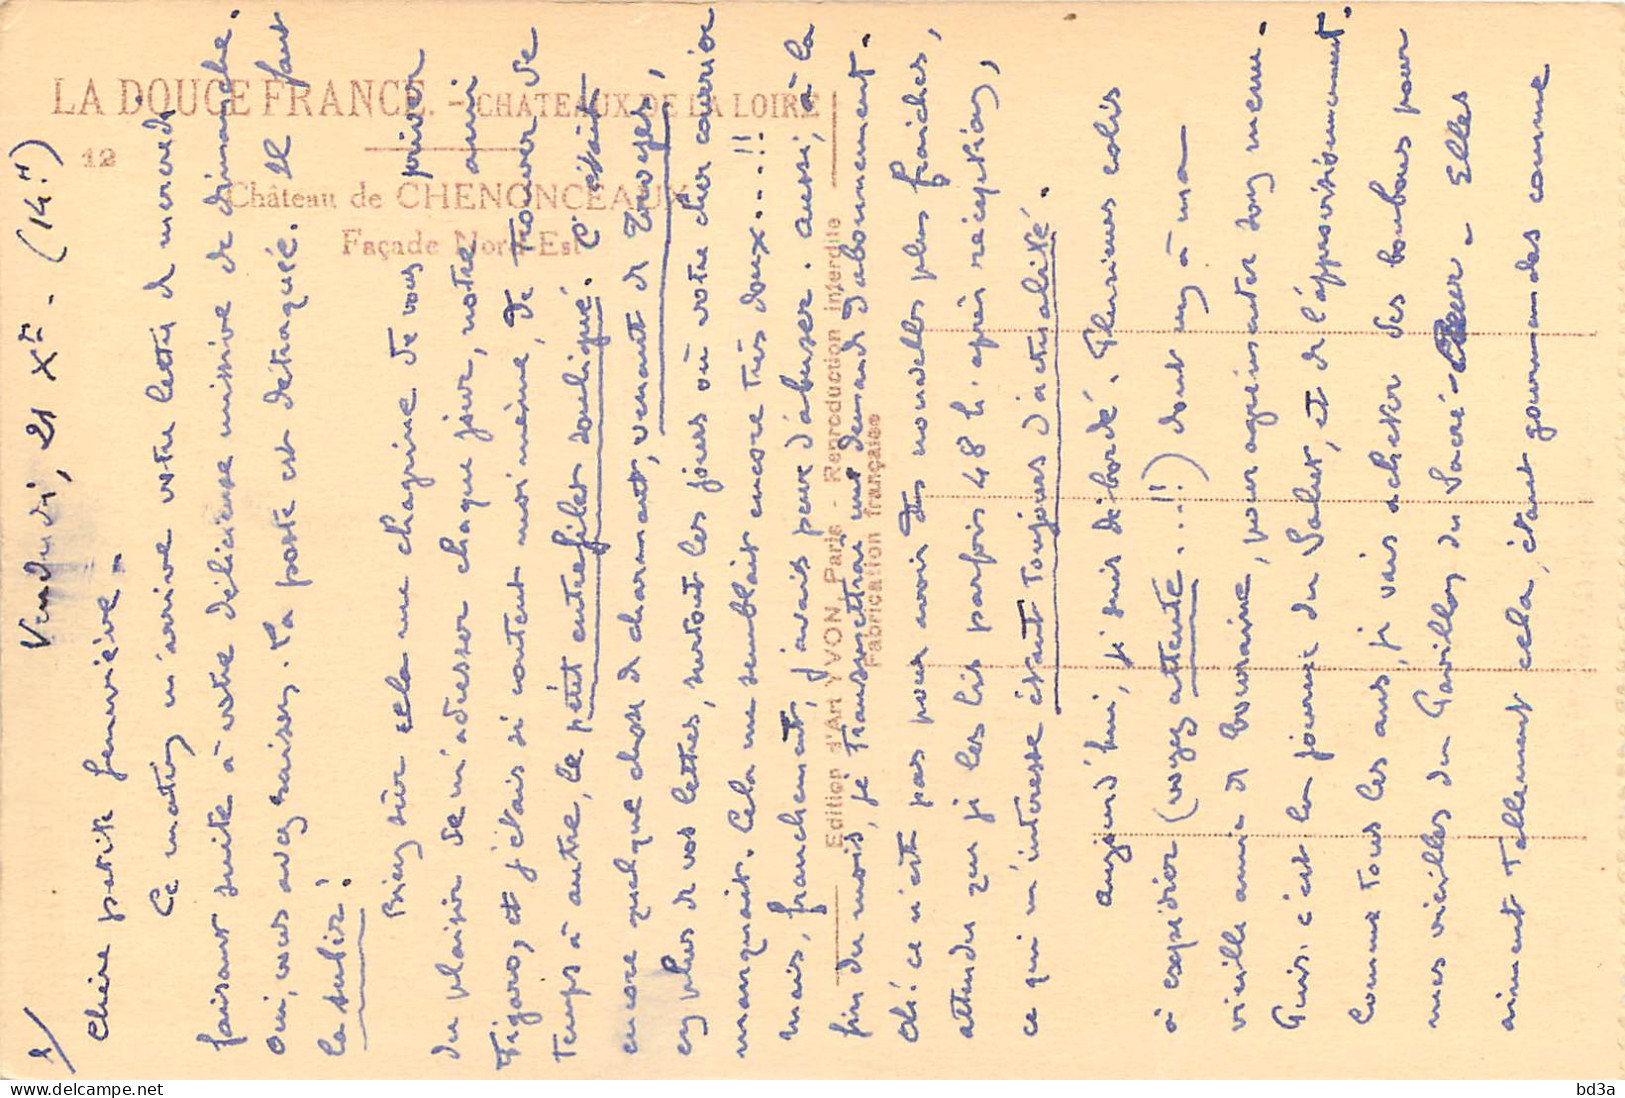 LA DOUCE FRANCE. - CHATEAUX DE LA LOIRE
12
Château de CHENONCEAUX
Façade Nord-Est
Edition d'Art YVON, Paris - Reproduction interdite
Fabrication française
1/
Vendredi, 21 Xbre - (14 H)
Chère petite Geneviève -
Ce matin m'arrive votre lettre de mercredi
faisant suite à votre délicieuse missive de dimanche.
Oui, vous avez raison. La poste est détraquée. Il faut
la subir !
Bien sûr cela me chagrine de vous priver
du plaisir de m'adresser chaque jour, notre ami
Figaro, et j'étais si content moi même, de trouver, de
temps à autre, le petit entrefilet souligné. C'était
encore quelque chose de charmant, venant de Troyes,
en plus de vos lettres, surtout les jours où votre cher courrier
manquait. Cela me semblait encore très doux....!!
Mais, franchement, j'avais peur d'abuser. Aussi, à la
fin du mois, je transmettrai une demande d'abonnement.
Oh! ce n'est pas pour avoir des nouvelles plus fraîches,
attendu que je les lis parfois 48 h. après réception,
ce qui m'intéresse étant toujours d'actualité.
Aujourd'hui, je suis débordé. Plusieurs colis
à expédier (voyez attente...!!) dont un à ma
vieille amie de Touraine, pour agrémenter son menu.
Puis c'est la journée du Salut, et de l'approvisionnement.
Comme tous les ans, je vais acheter des bonbons pour
mes vieilles du Pavillon du Sacré-Coeur - Elles
aiment tellement cela, étant gourmandes comme
bd3a